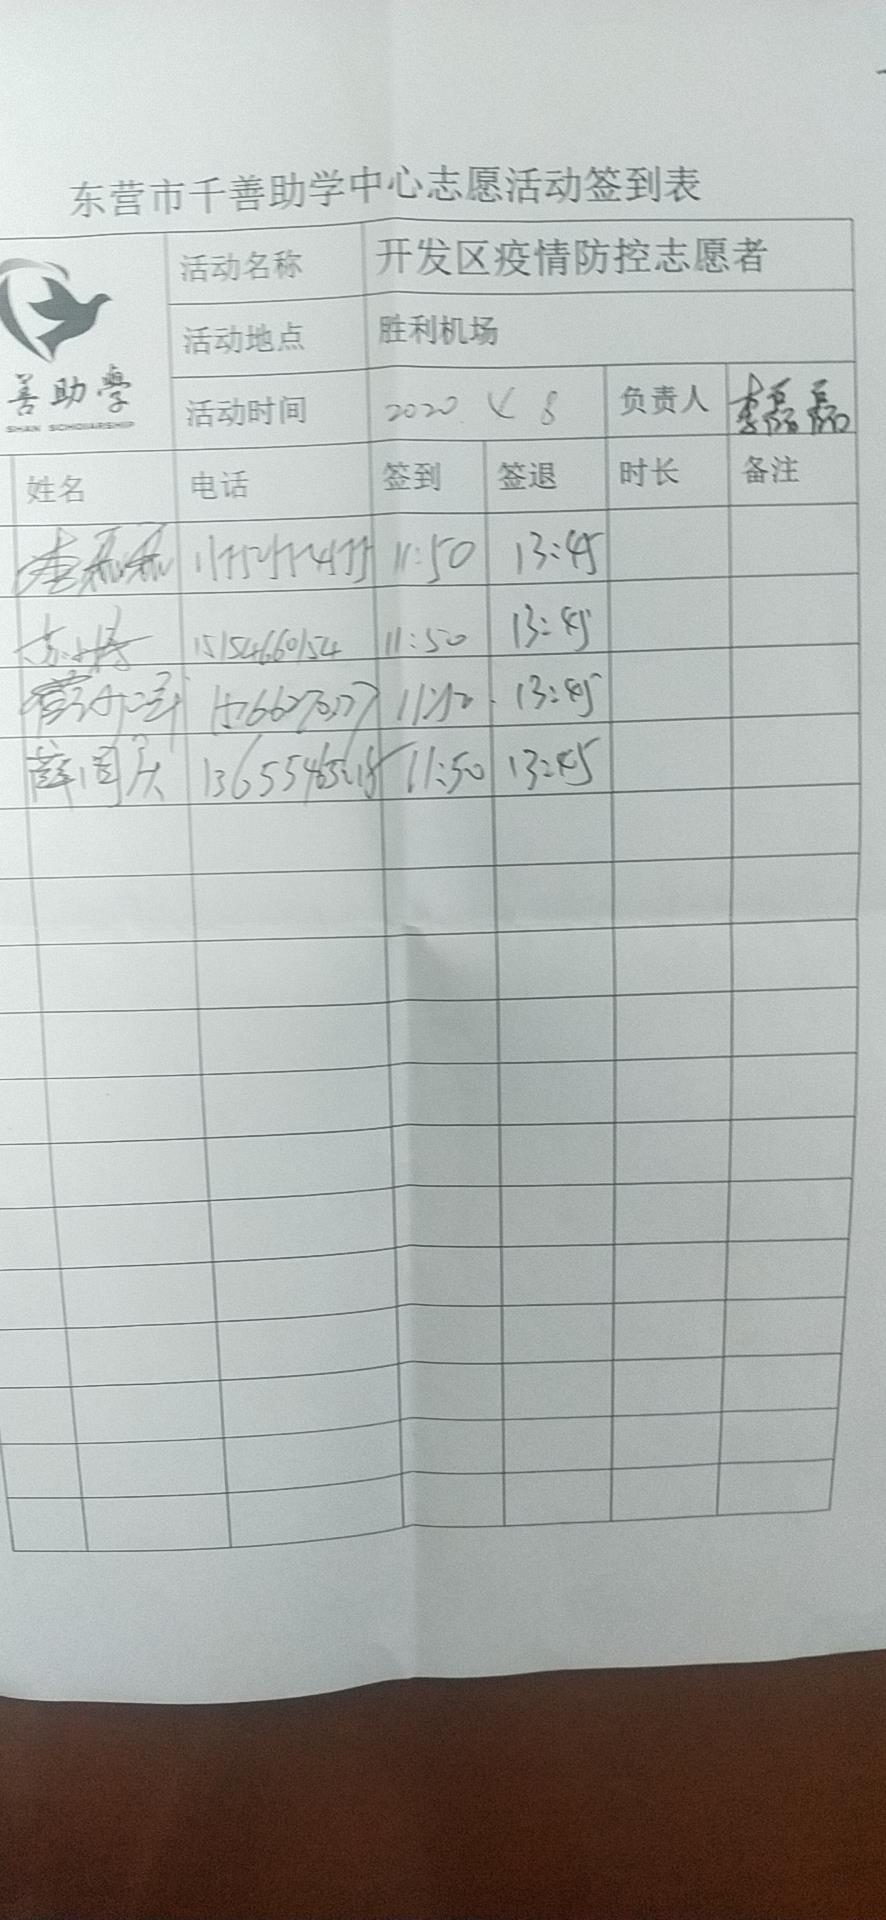 东营市千善助学中心志愿活动签到表
活动名称 开发区疫情防控志愿者
活动地点 胜利机场
善助學
SHAN SCHOLARSHIP
活动时间 2020 8 负责人 李磊磊
姓名 电话 签到 签退 时长 备注
11:50 13:45
15154660154 11:50 13:45
13:45
薛国庆 11:50 13:45